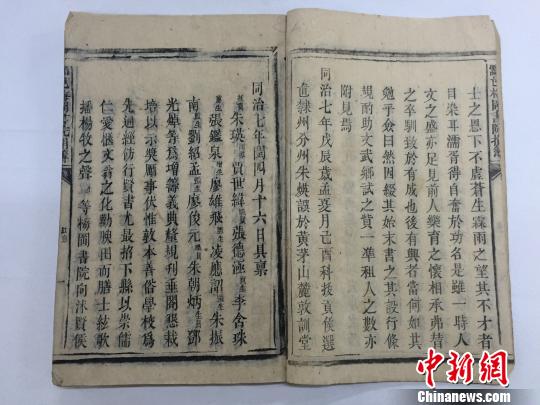 士之恩下不虛蒼生霖雨之望其不才者
目染耳濡胥得自奮於功名是雖一時人
文之盛亦足見前人樂育之懷相承弗替
之卒馴致於有成也後有興者當何如其
勉乎僉曰然因綴其始末書之其設行條
規酌助文武鄉試之費一準租人之數亦
附見焉
同治七年戊辰歲孟夏月己酉科拔貢候選
直隸州分州朱 誤於黃茅山麓敦訓堂
同治七年閏四月十六日具稟
朱瑛 賈世緯 張德極 李含珠
張鑑泉 廖雄飛 凌應詔 朱振
南 劉紹孟 廖俊元 朱朝炳 鄧
光 等為增籌義典釐規刊垂閤懇栽
培以示獎厲事伏惟敦本善俗學校為
先通經彷行賢書尤最招下縣以崇儒
仁愛恆文翁之化勸 田而膳士絃歌
播楊牧之聲 等梯圃書院向沐賢侯
中新网
Chinanews.com